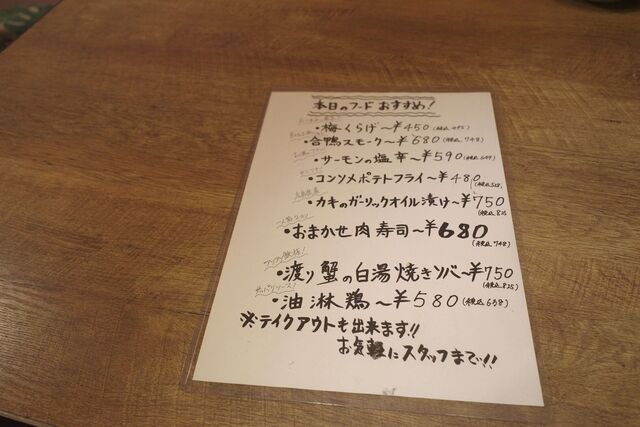 本日のフード おすすめ!
・梅くらげ〜¥450(税込495)
・合鴨スモーク〜¥680(税込748)
・サーモンの塩辛〜¥590(税込649)
・コンソメポテトフライ〜¥480(税込528)
・カキのガーリックオイル漬け〜¥750(税込825)
人気No.1
・おまかせ肉寿司〜¥680(税込748)
・渡り蟹の白湯焼きソバ〜¥750(税込825)
さっぱりソース!
・油淋鶏〜¥580(税込638)
※テイクアウトも出来ます!!
お気軽にスタッフまで!!